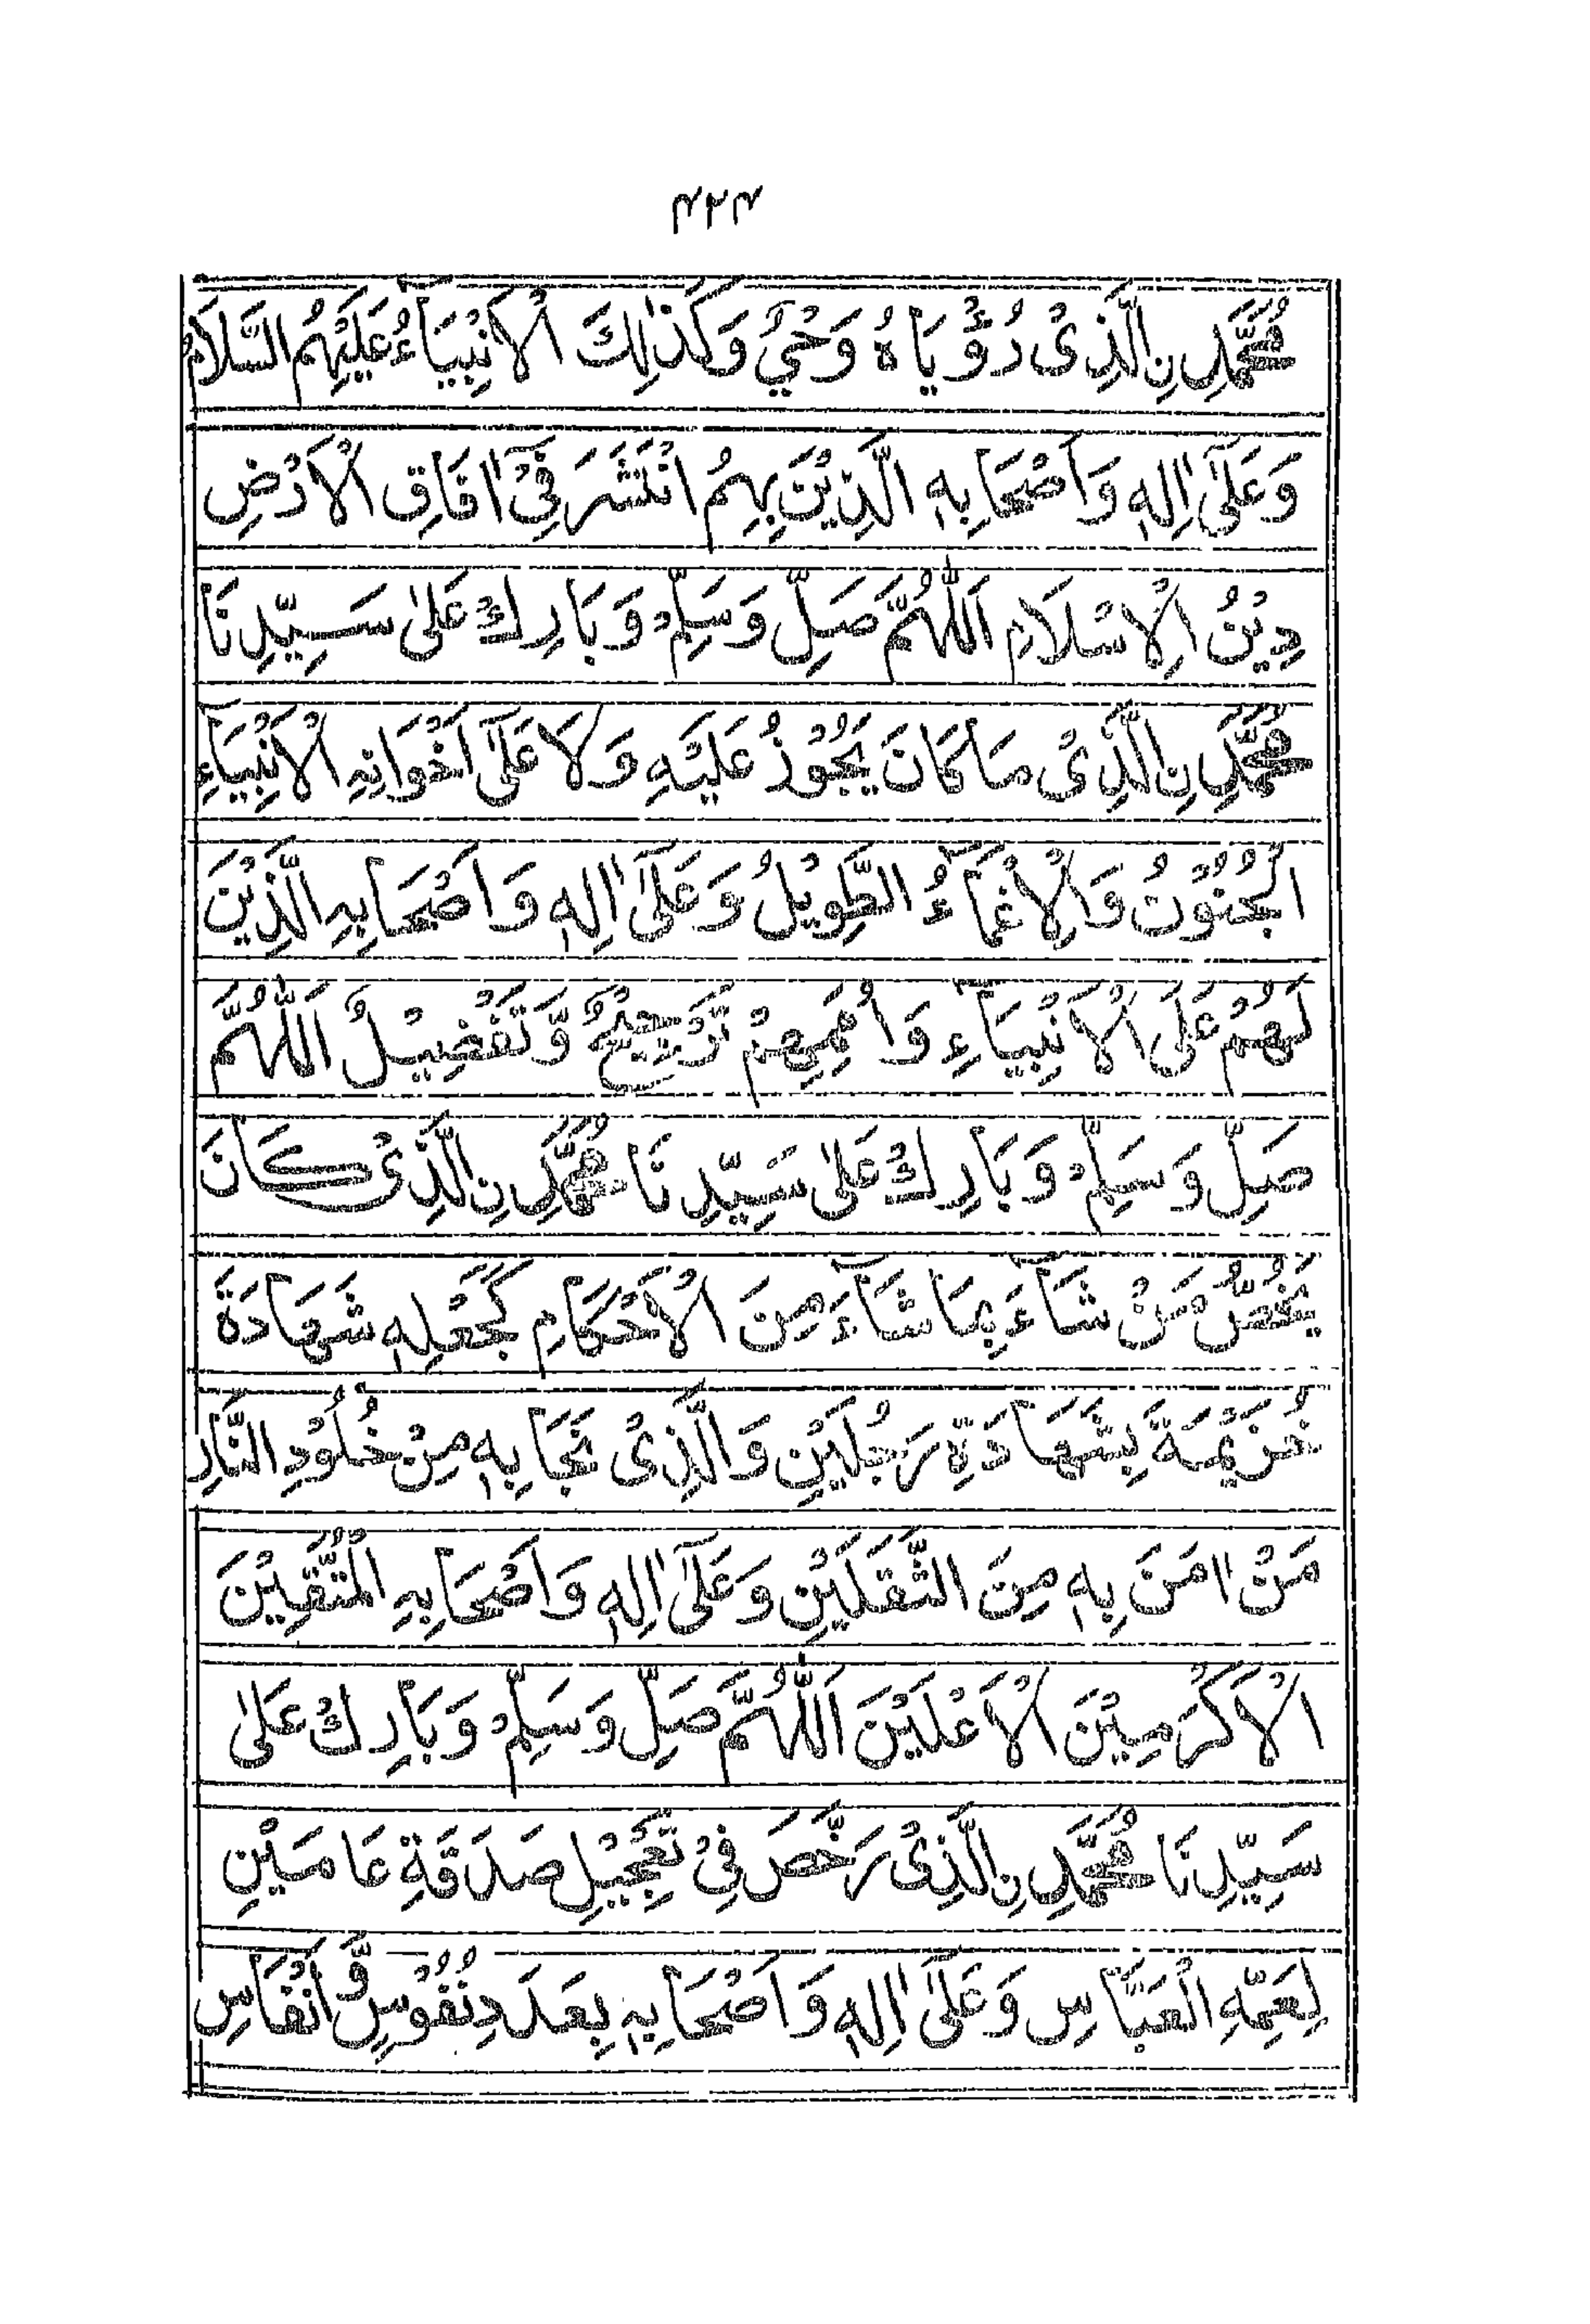 ٣٢٣
مُحَمَّدِ نِ الَّذِىْ رُؤْيَاهُ وَحْيٌ وَكَذٰلِكَ الْاَنْبِيَآءُ عَلَيْهِمُ السَّلَامُ
وَعَلٰٓى اٰلِهٖ وَاَصْحَابِهِ الَّذِيْنَ بِهِمُ انْتَشَرَ فِيْٓ اٰفَاقِ الْاَرْضِ
دِيْنُ الْاِسْلَامِ اَللّٰهُمَّ صَلِّ وَسَلِّمْ وَبَارِكْ عَلٰى سَيِّدِنَا
مُحَمَّدِ نِ الَّذِىْ مَا كَانَ يَجُوْزُ عَلَيْهِ وَلَا عَلٰٓى اَخْوَانِهِ الْاَنْبِيَآءِ
الْجُنُوْنُ وَالْاِغْمَآءُ الطَّوِيْلُ وَعَلٰٓى اٰلِهٖ وَاَصْحَابِهِ الَّذِيْنَ
لَهُمْ عَلَى الْاَنْبِيَآءِ وَاُمَمِهِمْ تَرْجِيْحٌ وَّتَفْضِيْلٌ اَللّٰهُمَّ
صَلِّ وَسَلِّمْ وَبَارِكْ عَلٰى سَيِّدِنَا مُحَمَّدِ نِ الَّذِىْ كَانَ
يَخُصُّ مَنْ شَآءَ بِمَا شَآءَ مِنَ الْاَحْكَامِ كَجَعْلِهٖ شَهَادَةَ
خُزَيْمَةَ بِشَهَادَةِ رَجُلَيْنِ وَالَّذِىْ نَجَا بِهٖ مِنْ خُلُوْدِ النَّارِ
مَنْ اٰمَنَ بِهٖ مِنَ الثَّقَلَيْنِ وَعَلٰٓى اٰلِهٖ وَاَصْحَابِهِ الْمُتَّقِيْنَ
الْاَكْرَمِيْنَ الْاَعْلَيْنَ اَللّٰهُمَّ صَلِّ وَسَلِّمْ وَبَارِكْ عَلٰى
سَيِّدِنَا مُحَمَّدِ نِ الَّذِىْ رَخَّصَ فِيْ تَعْجِيْلِ صَدَقَةِ عَامَيْنِ
لِعَمِّهِ الْعَبَّاسِ وَعَلٰٓى اٰلِهٖ وَاَصْحَابِهٖ بِعَدَدِ نُفُوْسٍ وَّاَنْفَاسِ